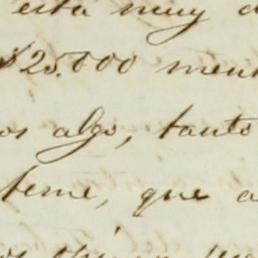 está muy
$25.000 men
os algo, tanto
teme, que a